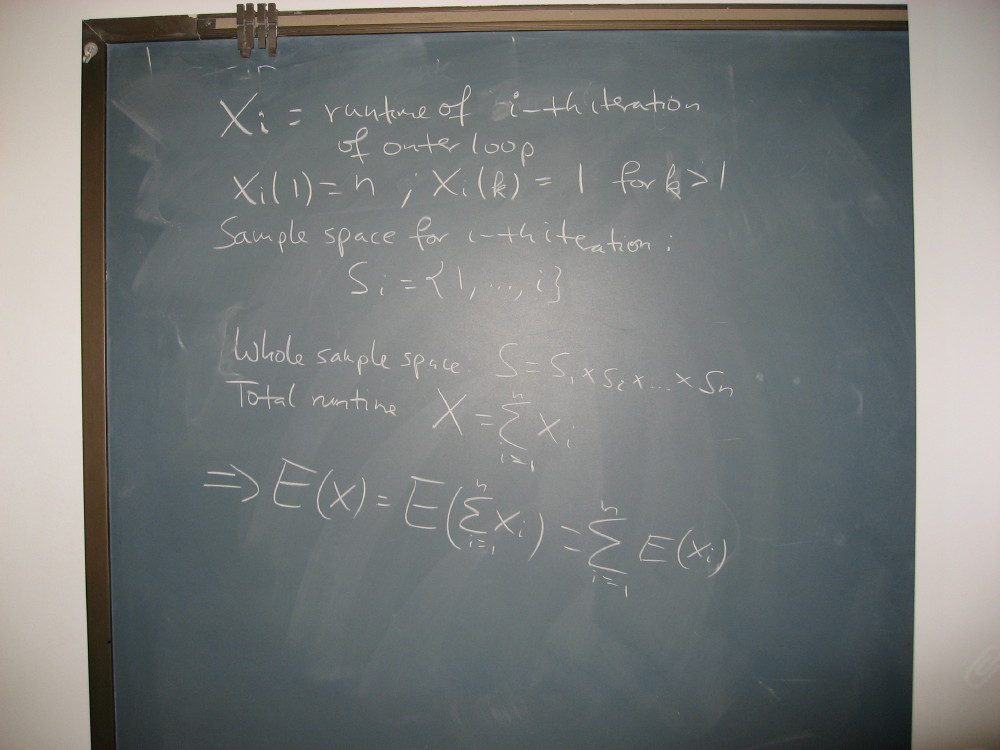 Xi = runtime of i-th iteration
of outer loop
Xi(1) = n ; Xi(k) = 1 for k > 1
Sample space for i-th iteration :
Si = {1, ..., i}
Whole sample space S = S1 × S2 × ... × Sn
Total runtime X = ∑_{i=1}^{n} Xi
⇒ E(X) = E(∑_{i=1}^{n} Xi) = ∑_{i=1}^{n} E(Xi)